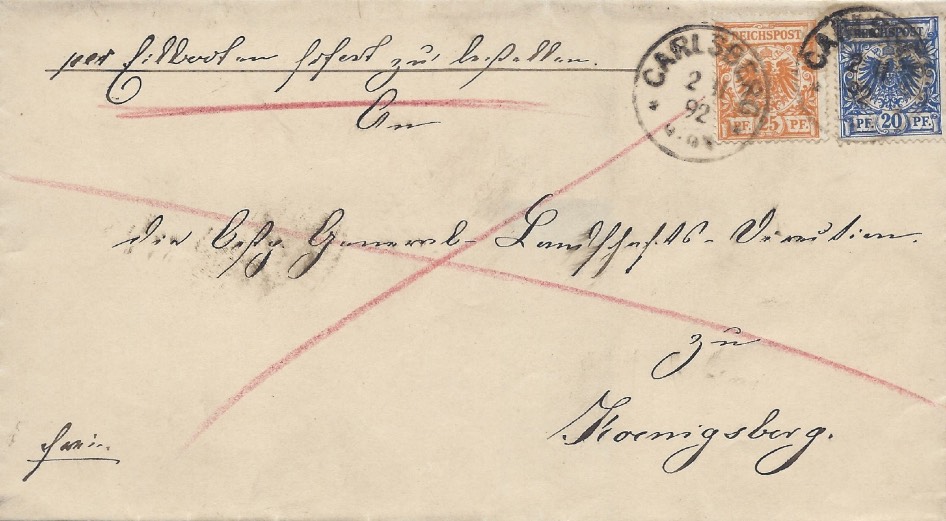 per Eilboten sofort zu bestellen.
An
die Ostpr. General-Landschafts-Direction.
zu
Koenigsberg.
frei.
CARLSBERG
2 11
92
REICHSPOST
PF. 25 PF.
REICHSPOST
PF. 20 PF.
92